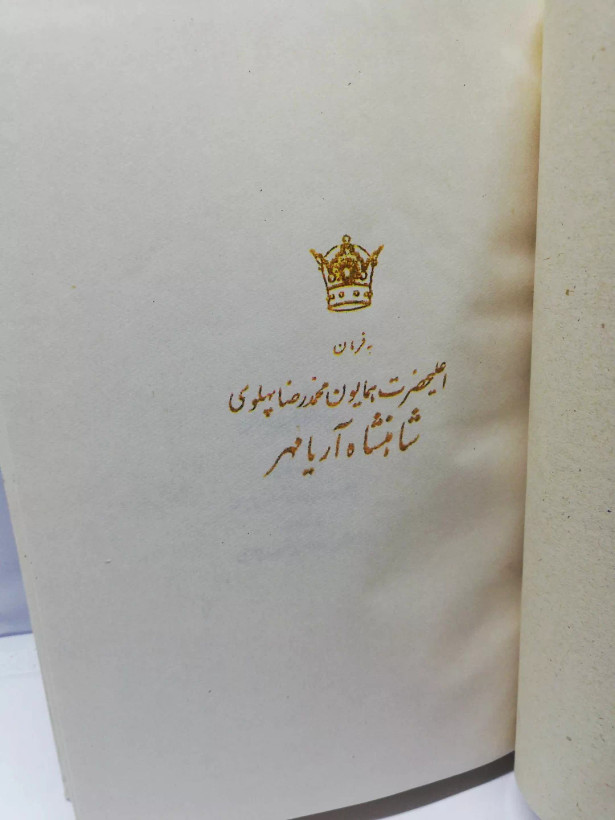 به فرمان
اعلیحضرت همایون محمدرضا پهلوی
شاهنشاه آریامهر